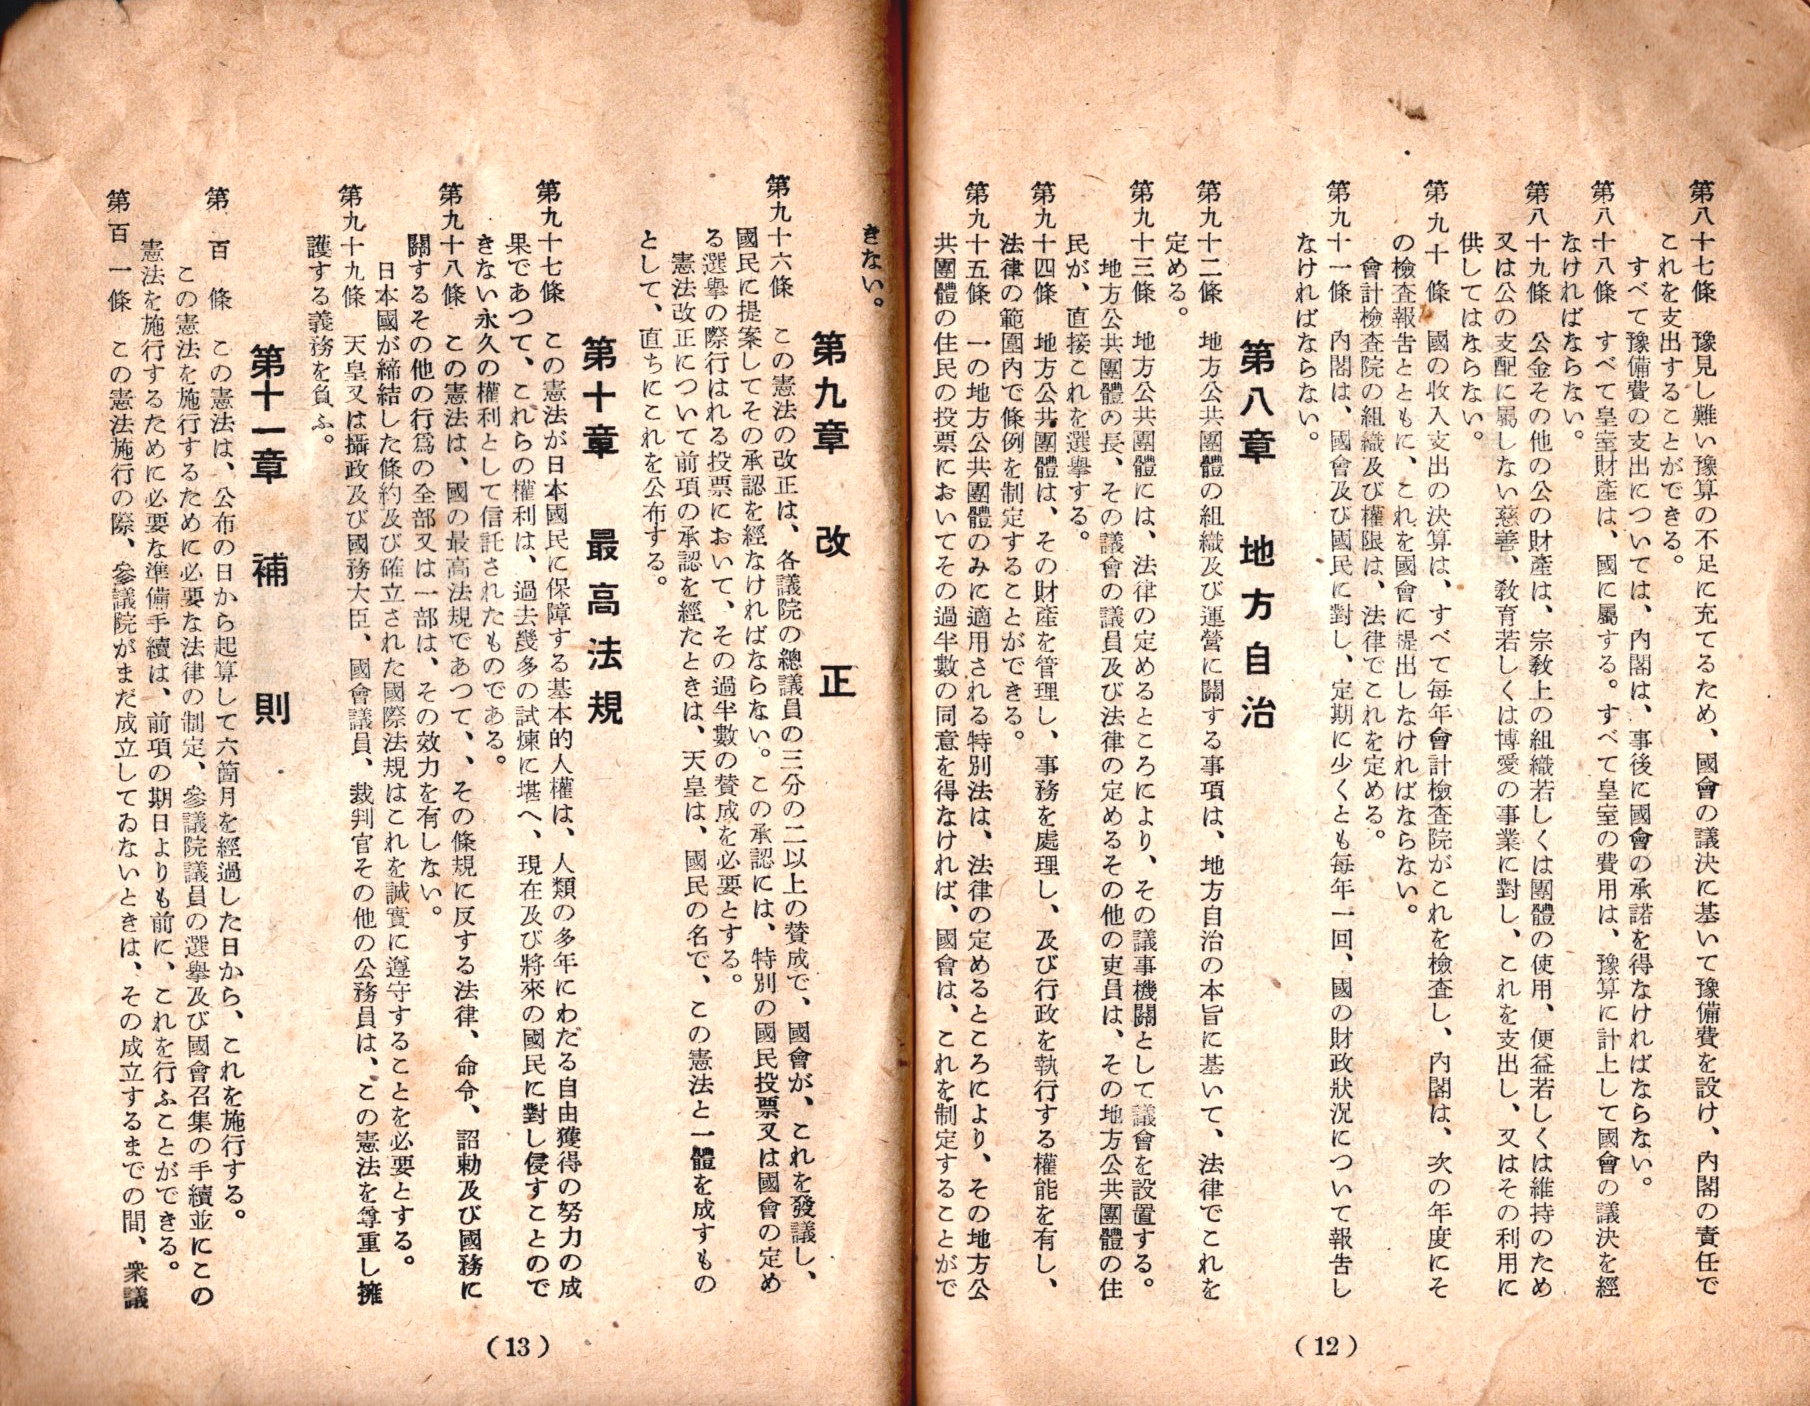 第八十七條　豫見し難い豫算の不足に充てるため、國會の議決に基いて豫備費を設け、内閣の責任で
これを支出することができる。
すべて豫備費の支出については、内閣は、事後に國會の承諾を得なければならない。
第八十八條　すべて皇室財產は、國に屬する。すべて皇室の費用は、豫算に計上して國會の議決を經
なければならない。
第八十九條　公金その他の公の財產は、宗教上の組織若しくは團體の使用、便益若しくは維持のため
又は公の支配に屬しない慈善、教育若しくは博愛の事業に對し、これを支出し、又はその利用に
供してはならない。
第九十條　國の收入支出の決算は、すべて每年會計檢査院がこれを檢査し、内閣は、次の年度にそ
の檢査報告とともに、これを國會に提出しなければならない。
會計檢査院の組織及び權限は、法律でこれを定める。
第九十一條　内閣は、國會及び國民に對し、定期に少くとも每年一回、國の財政狀況について報告し
なければならない。
第八章　地方自治
第九十二條　地方公共團體の組織及び運營に關する事項は、地方自治の本旨に基いて、法律でこれを
定める。
第九十三條　地方公共團體には、法律の定めるところにより、その議事機關として議會を設置する。
地方公共團體の長、その議會の議員及び法律の定めるその他の吏員は、その地方公共團體の住
民が、直接これを選擧する。
第九十四條　地方公共團體は、その財產を管理し、事務を處理し、及び行政を執行する權能を有し、
法律の範圍内で條例を制定することができる。
第九十五條　一の地方公共團體のみに適用される特別法は、法律の定めるところにより、その地方公
共團體の住民の投票においてその過半數の同意を得なければ、國會は、これを制定することがで
(12)
きない。
第九章　改正
第九十六條　この憲法の改正は、各議院の總議員の三分の二以上の賛成で、國會が、これを發議し、
國民に提案してその承認を經なければならない。この承認には、特別の國民投票又は國會の定め
る選擧の際行はれる投票において、その過半數の賛成を必要とする。
憲法改正について前項の承認を經たときは、天皇は、國民の名で、この憲法と一體を成すもの
として、直ちにこれを公布する。
第十章　最高法規
第九十七條　この憲法が日本國民に保障する基本的人權は、人類の多年にわだる自由獲得の努力の成
果であつて、これらの權利は、過去幾多の試煉に堪へ、現在及び將來の國民に對し侵すことので
きない永久の權利として信託されたものである。
第九十八條　この憲法は、國の最高法規であつて、、その條規に反する法律、命令、詔勅及び國務に
關するその他の行爲の全部又は一部は、その效力を有しない。
日本國が締結した條約及び確立された國際法規はこれを誠實に遵守することを必要とする。
第九十九條　天皇又は攝政及び國務大臣、國會議員、裁判官その他の公務員は、この憲法を尊重し擁
護する義務を負ふ。
第十一章　補則
第百條　この憲法は、公布の日から起算して六箇月を經過した日から、これを施行する。
この憲法を施行するために必要な法律の制定、參議院議員の選擧及び國會召集の手續並にこの
憲法を施行するために必要な準備手續は、前項の期日よりも前に、これを行ふことができる。
第百一條　この憲法施行の際、參議院がまだ成立してゐないときは、その成立するまでの間、衆議
(13)